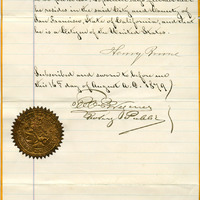 he resides in the said City and County of
San Francisco, State of California, and that
he is a Citizen of the United States.
Henry
Subscribed and sworn to before me
this 16th day of August A.D. 1879
Notary Public